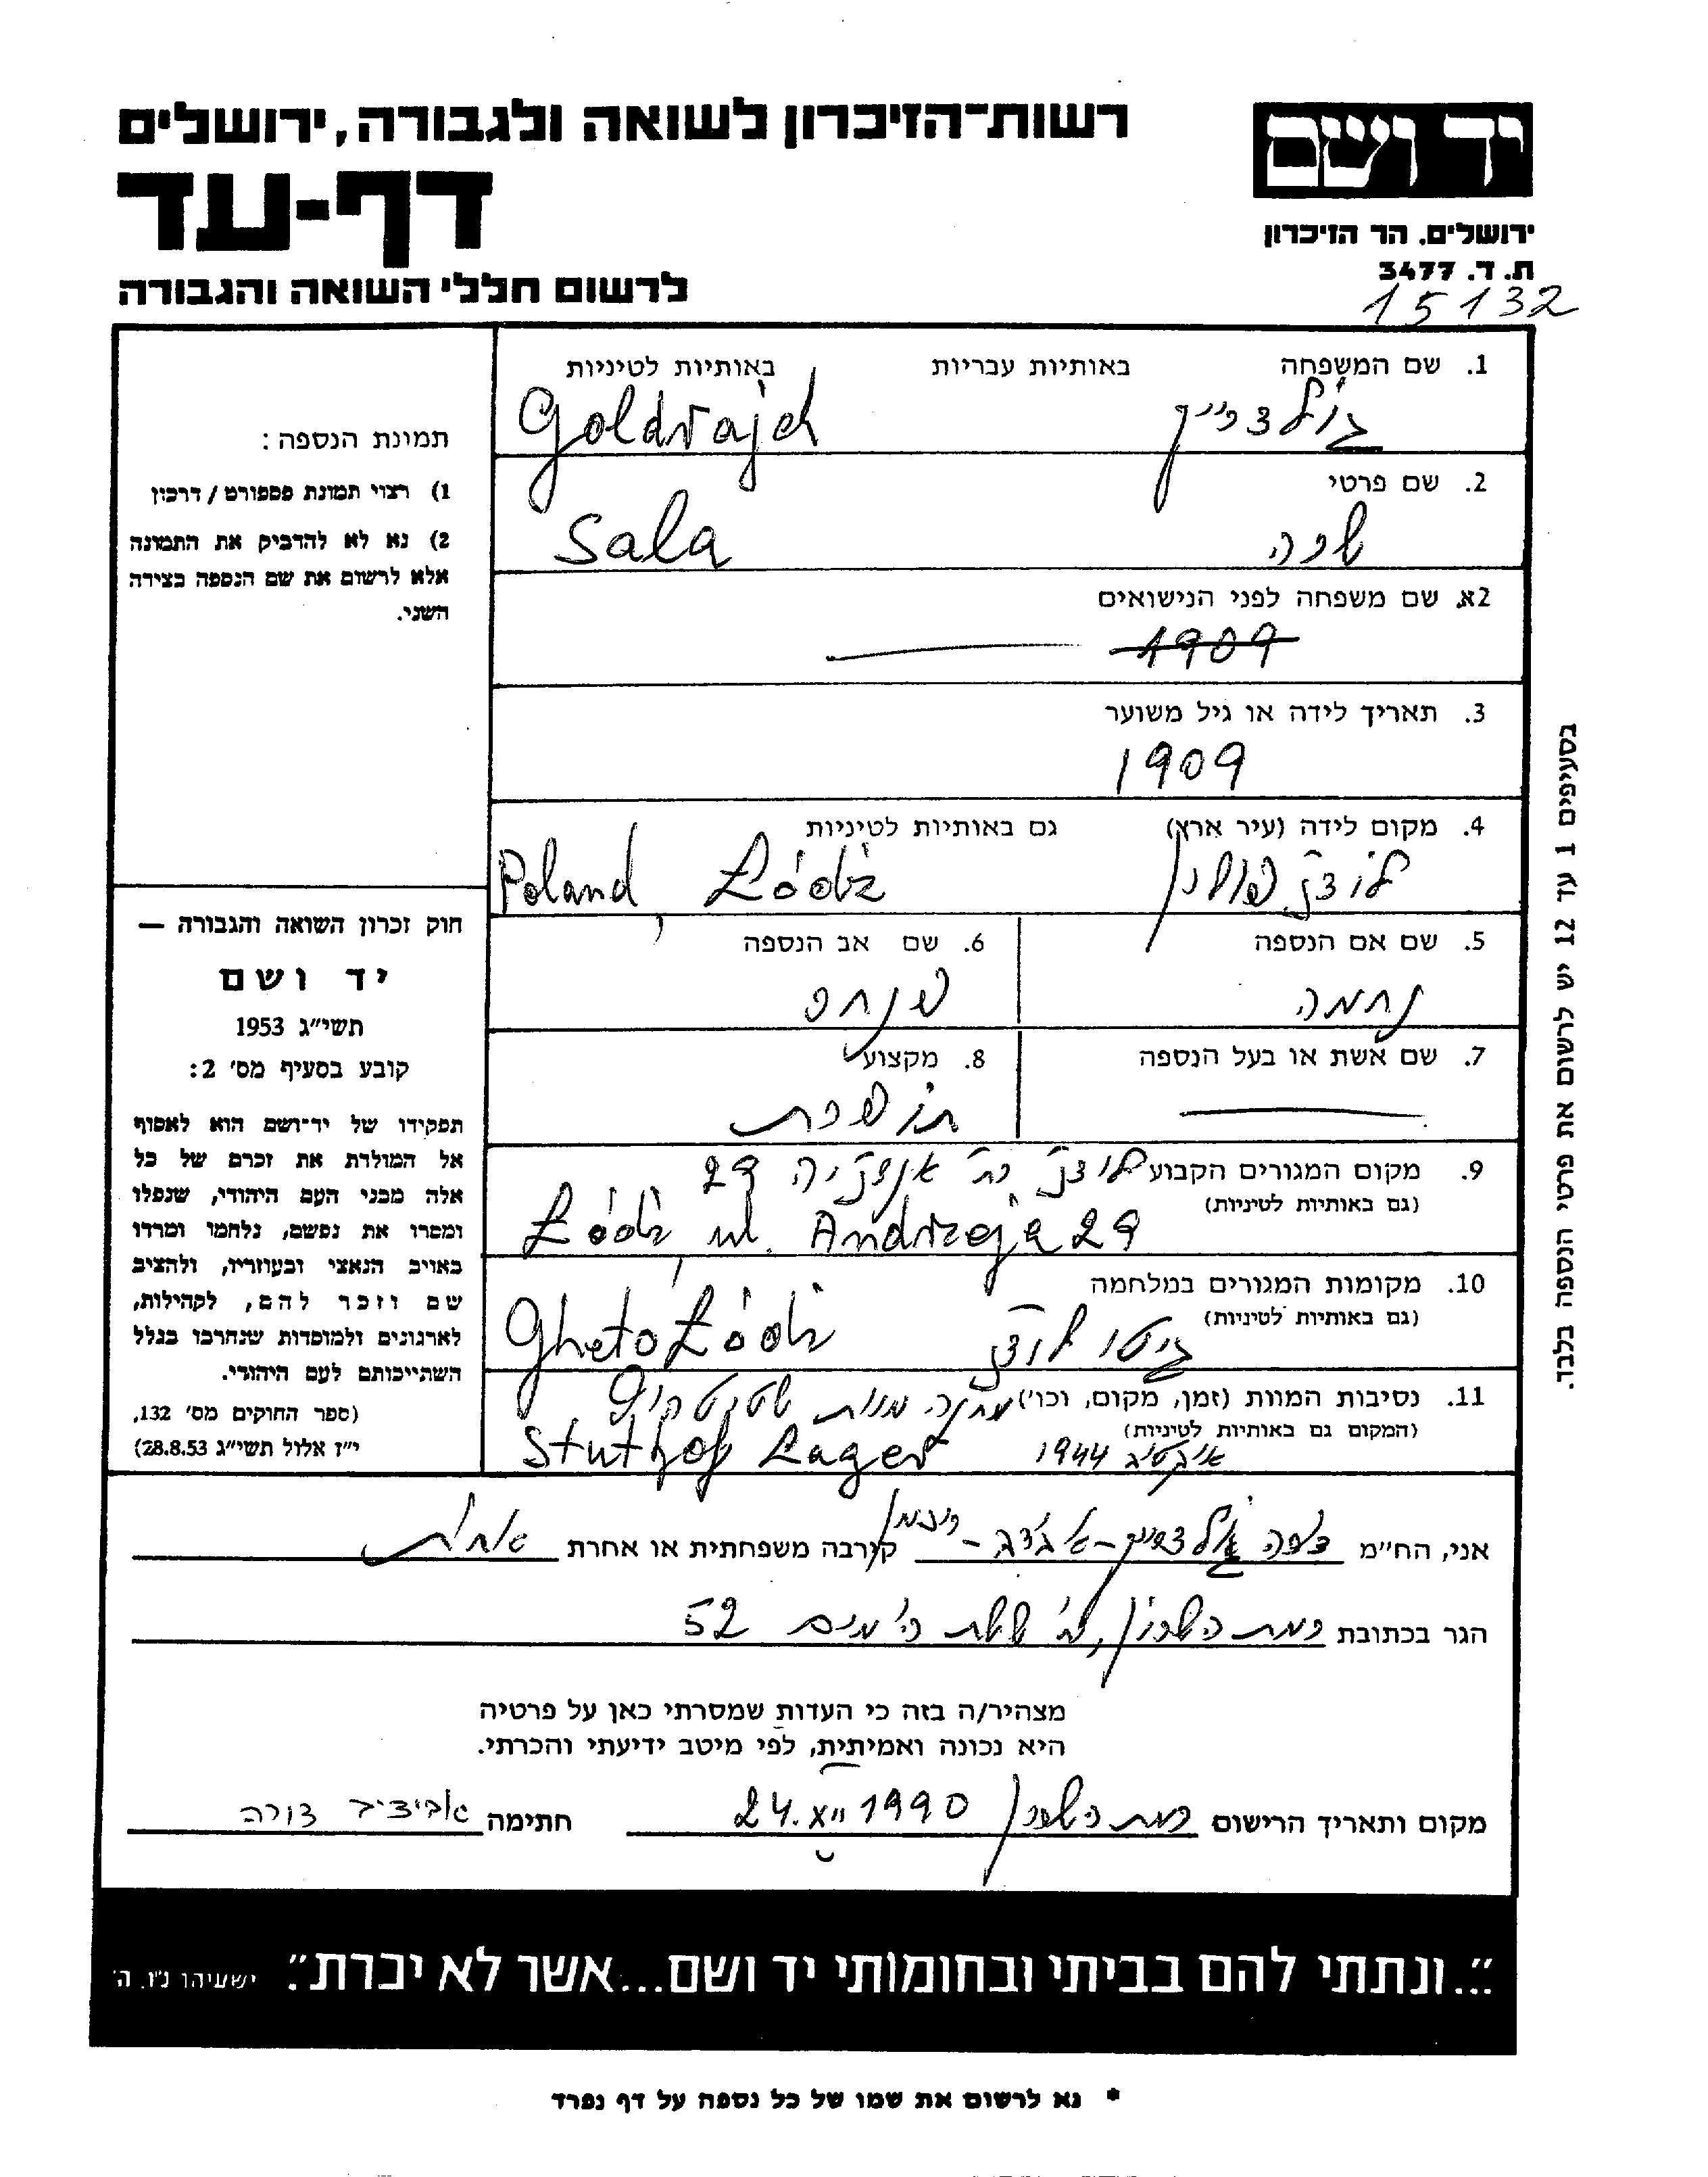 רשות־הזיכרון לשואה ולגבורה, ירושלים
דף-עד
לרשום חללי השואה והגבורה
יד ושם
ירושלים. הר הזיכרון
ת. ד. 3477
15132
1. שם המשפחה באותיות עבריות באותיות לטיניות
גולדרייך Goldrajch
2. שם פרטי
שרה Sala
2א. שם משפחה לפני הנישואים
1909
3. תאריך לידה או גיל משוער
1909
4. מקום לידה (עיר ארץ) גם באותיות לטיניות
לודז' פולין Łódź, Poland
5. שם אם הנספה
נחמה
6. שם אב הנספה
פנחס
7. שם אשת או בעל הנספה
8. מקצוע
תופרת
9. מקום המגורים הקבוע לודז' רח' אנדז'יה 29
(גם באותיות לטיניות)
Łódź, ul. Andrzeja 29
10. מקומות המגורים במלחמה
(גם באותיות לטיניות)
גיטו לודז Gheto Łódź
11. נסיבות המוות (זמן, מקום, וכו') מחנה מוות
(המקום גם באותיות לטיניות)
1944 Stuthof Lager
תמונת הנספה:
1) רצוי תמונת פספורט / דרכון
2) נא לא להדביק את התמונה
אלא לרשום את שם הנספה בצידה
השני.
חוק זכרון השואה והגבורה —
יד ושם
תשי״ג 1953
קובע בסעיף מס׳ 2:
תפקידו של יד־ושם הוא לאסוף
אל המולדת את זכרם של כל
אלה מבני העם היהודי, שנפלו
ומסרו את נפשם, נלחמו ומרדו
באויב הנאצי ובעוזריו, ולהציב
שם וזכר להם, לקהילות,
לארגונים ולמוסדות שנחרבו בגלל
השתייכותם לעם היהודי.
(ספר החוקים מס׳ 132,
י״ז אלול תשי״ג 28.8.53)
בסעיפים 1 עד 12 יש לרשום את פרטי הנספה בלבד.
אני, הח״מ גולדרייך קירבה משפחתית או אחרת אחות
הגר בכתובת רמת השרון, רח' ששת הימים 52
מצהיר/ה בזה כי העדות שמסרתי כאן על פרטיה
היא נכונה ואמיתית, לפי מיטב ידיעתי והכרתי.
מקום ותאריך הרישום רמת השרון 24.XII 1990 חתימה
״...ונתתי להם בביתי ובחומותי יד ושם...אשר לא יכרת״. ישעיהו נ״ו. ה׳
* נא לרשום את שמו של כל נספה על דף נפרד